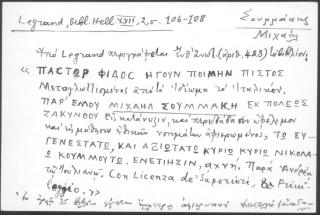 Legrand, Bibl. Hell. XVII, 2, σ. 106-108
Σουμμάκης
Μιχαήλ
Ὑπὸ Legrand περιγράφεται (ἀριθ. 423)
« ΠΑΣΤΩΡ ΦΙΔΟΣ ΗΓΟΥΝ ΠΟΙΜΗΝ ΠΙΣΤΟΣ
Μεταγλωττισμένος ἀπὸ τὸ ἰδίωμα τῶ Ἰταλικόν,
ΠΑΡ' ΕΜΟΥ ΜΙΧΑΗΛ ΣΟΥΜΜΑΚΗ ΕΚ ΠΟΛΕΩΣ
ΖΑΚΥΝΘΟΥ Εἰς κατάνυξιν, καὶ
καὶ εἰς μάθησιν ἠθικῶν νοημάτων ἀφιερωμένος, ΤΩ ΕΥ-
ΓΕΝΕΣΤΑΤΩ, ΚΑΙ ΑΞΙΩΤΑΤΩ ΚΥΡΙΩ ΚΥΡΙΩ ΝΙΚΟΛΑ-
Ω ΚΟΥΜΜΟΥΤΩ, ΕΝΕΤΙΗΣΙΝ, αχνη, Παρὰ Ἀνδρέα
τῷ Ἰουλιανῷ. Con Licenza de' Superiori, & Privi-
legio. »